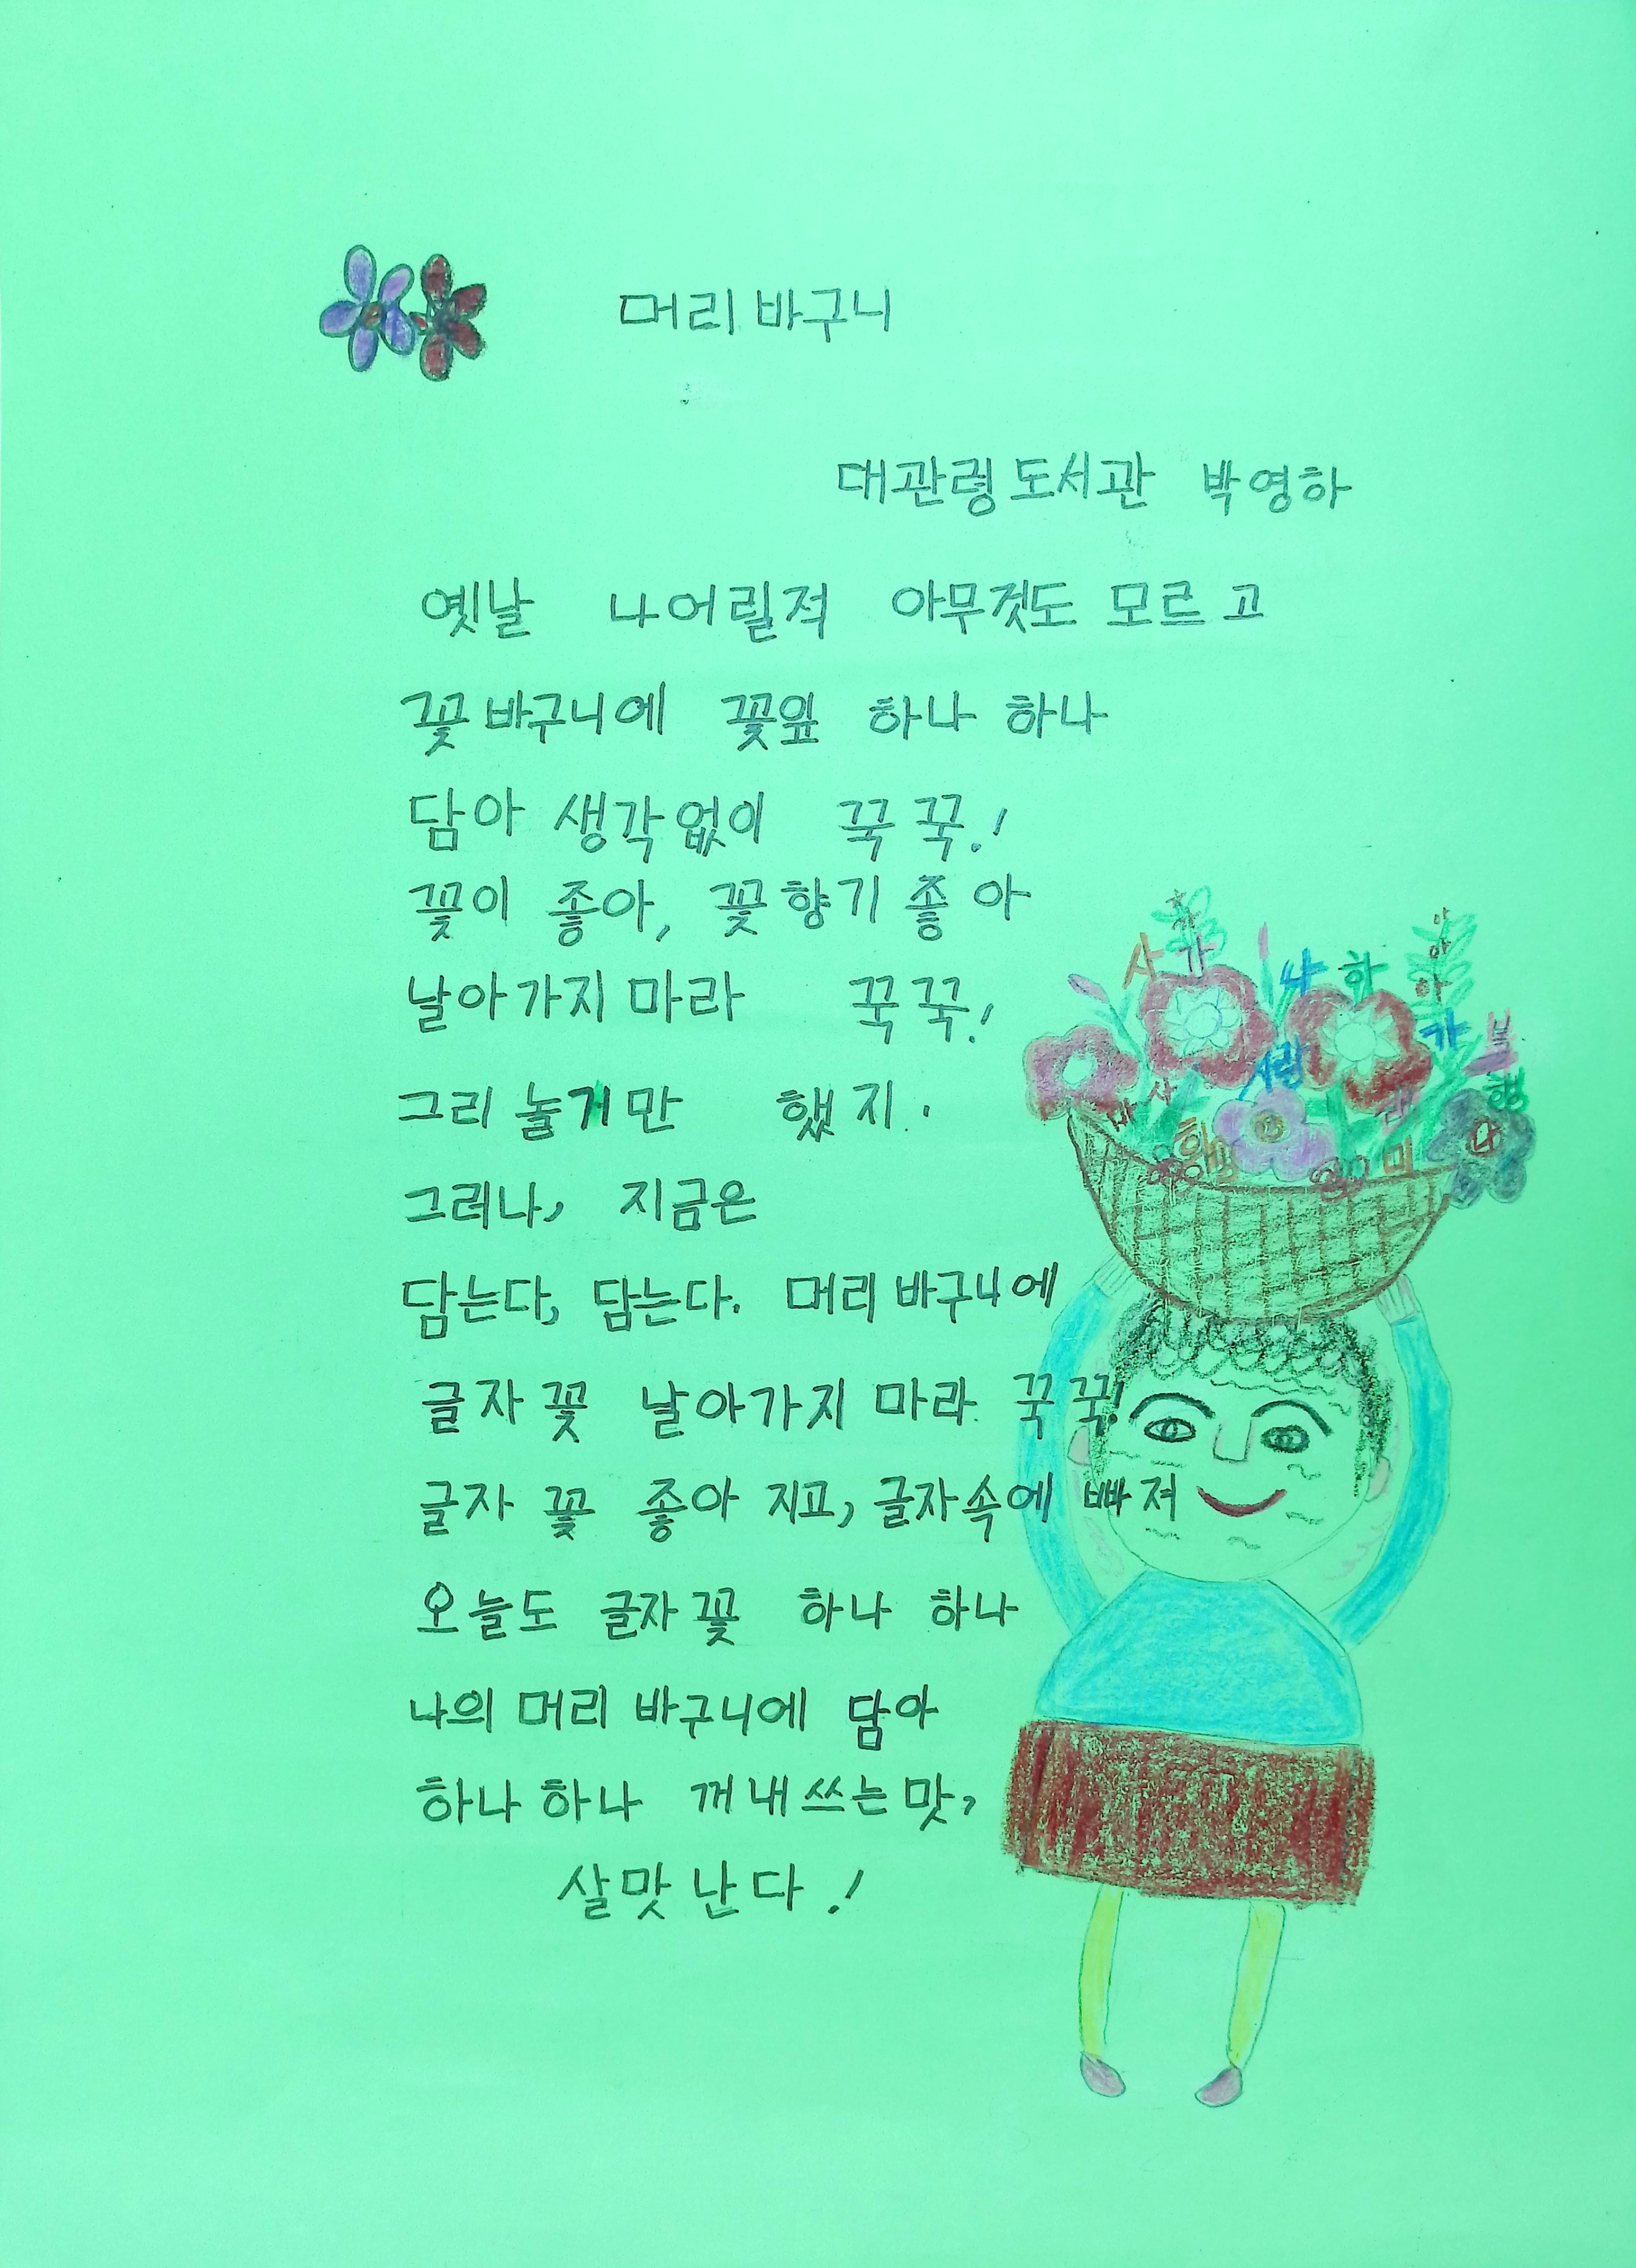 머리 바구니
대관령 도서관 박영하
옛날 나어릴적 아무것도 모르고
꽃바구니에 꽃잎 하나 하나
담아 생각없이 꾹 꾹!
꽃이 좋아, 꽃향기 좋아
날아가지 마라 꾹꾹!
그리 놀기만 했지.
그러나, 지금은
담는다, 담는다. 머리 바구니에
글자 꽃 날아가지 마라 꾹 꾹!
글자 꽃 좋아 지고, 글자속에 빠져
오늘도 글자꽃 하나 하나
나의 머리 바구니에 담아
하나 하나 꺼내쓰는 맛,
살맛 난다!
사 가 나 하 아
야
아
카 복
사랑
행
미